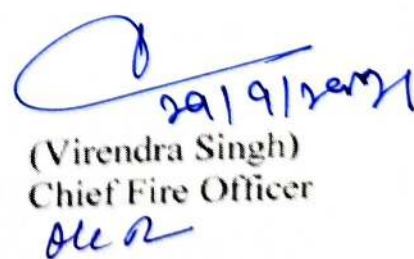 29/9/2021
(Virendra Singh)
Chief Fire Officer